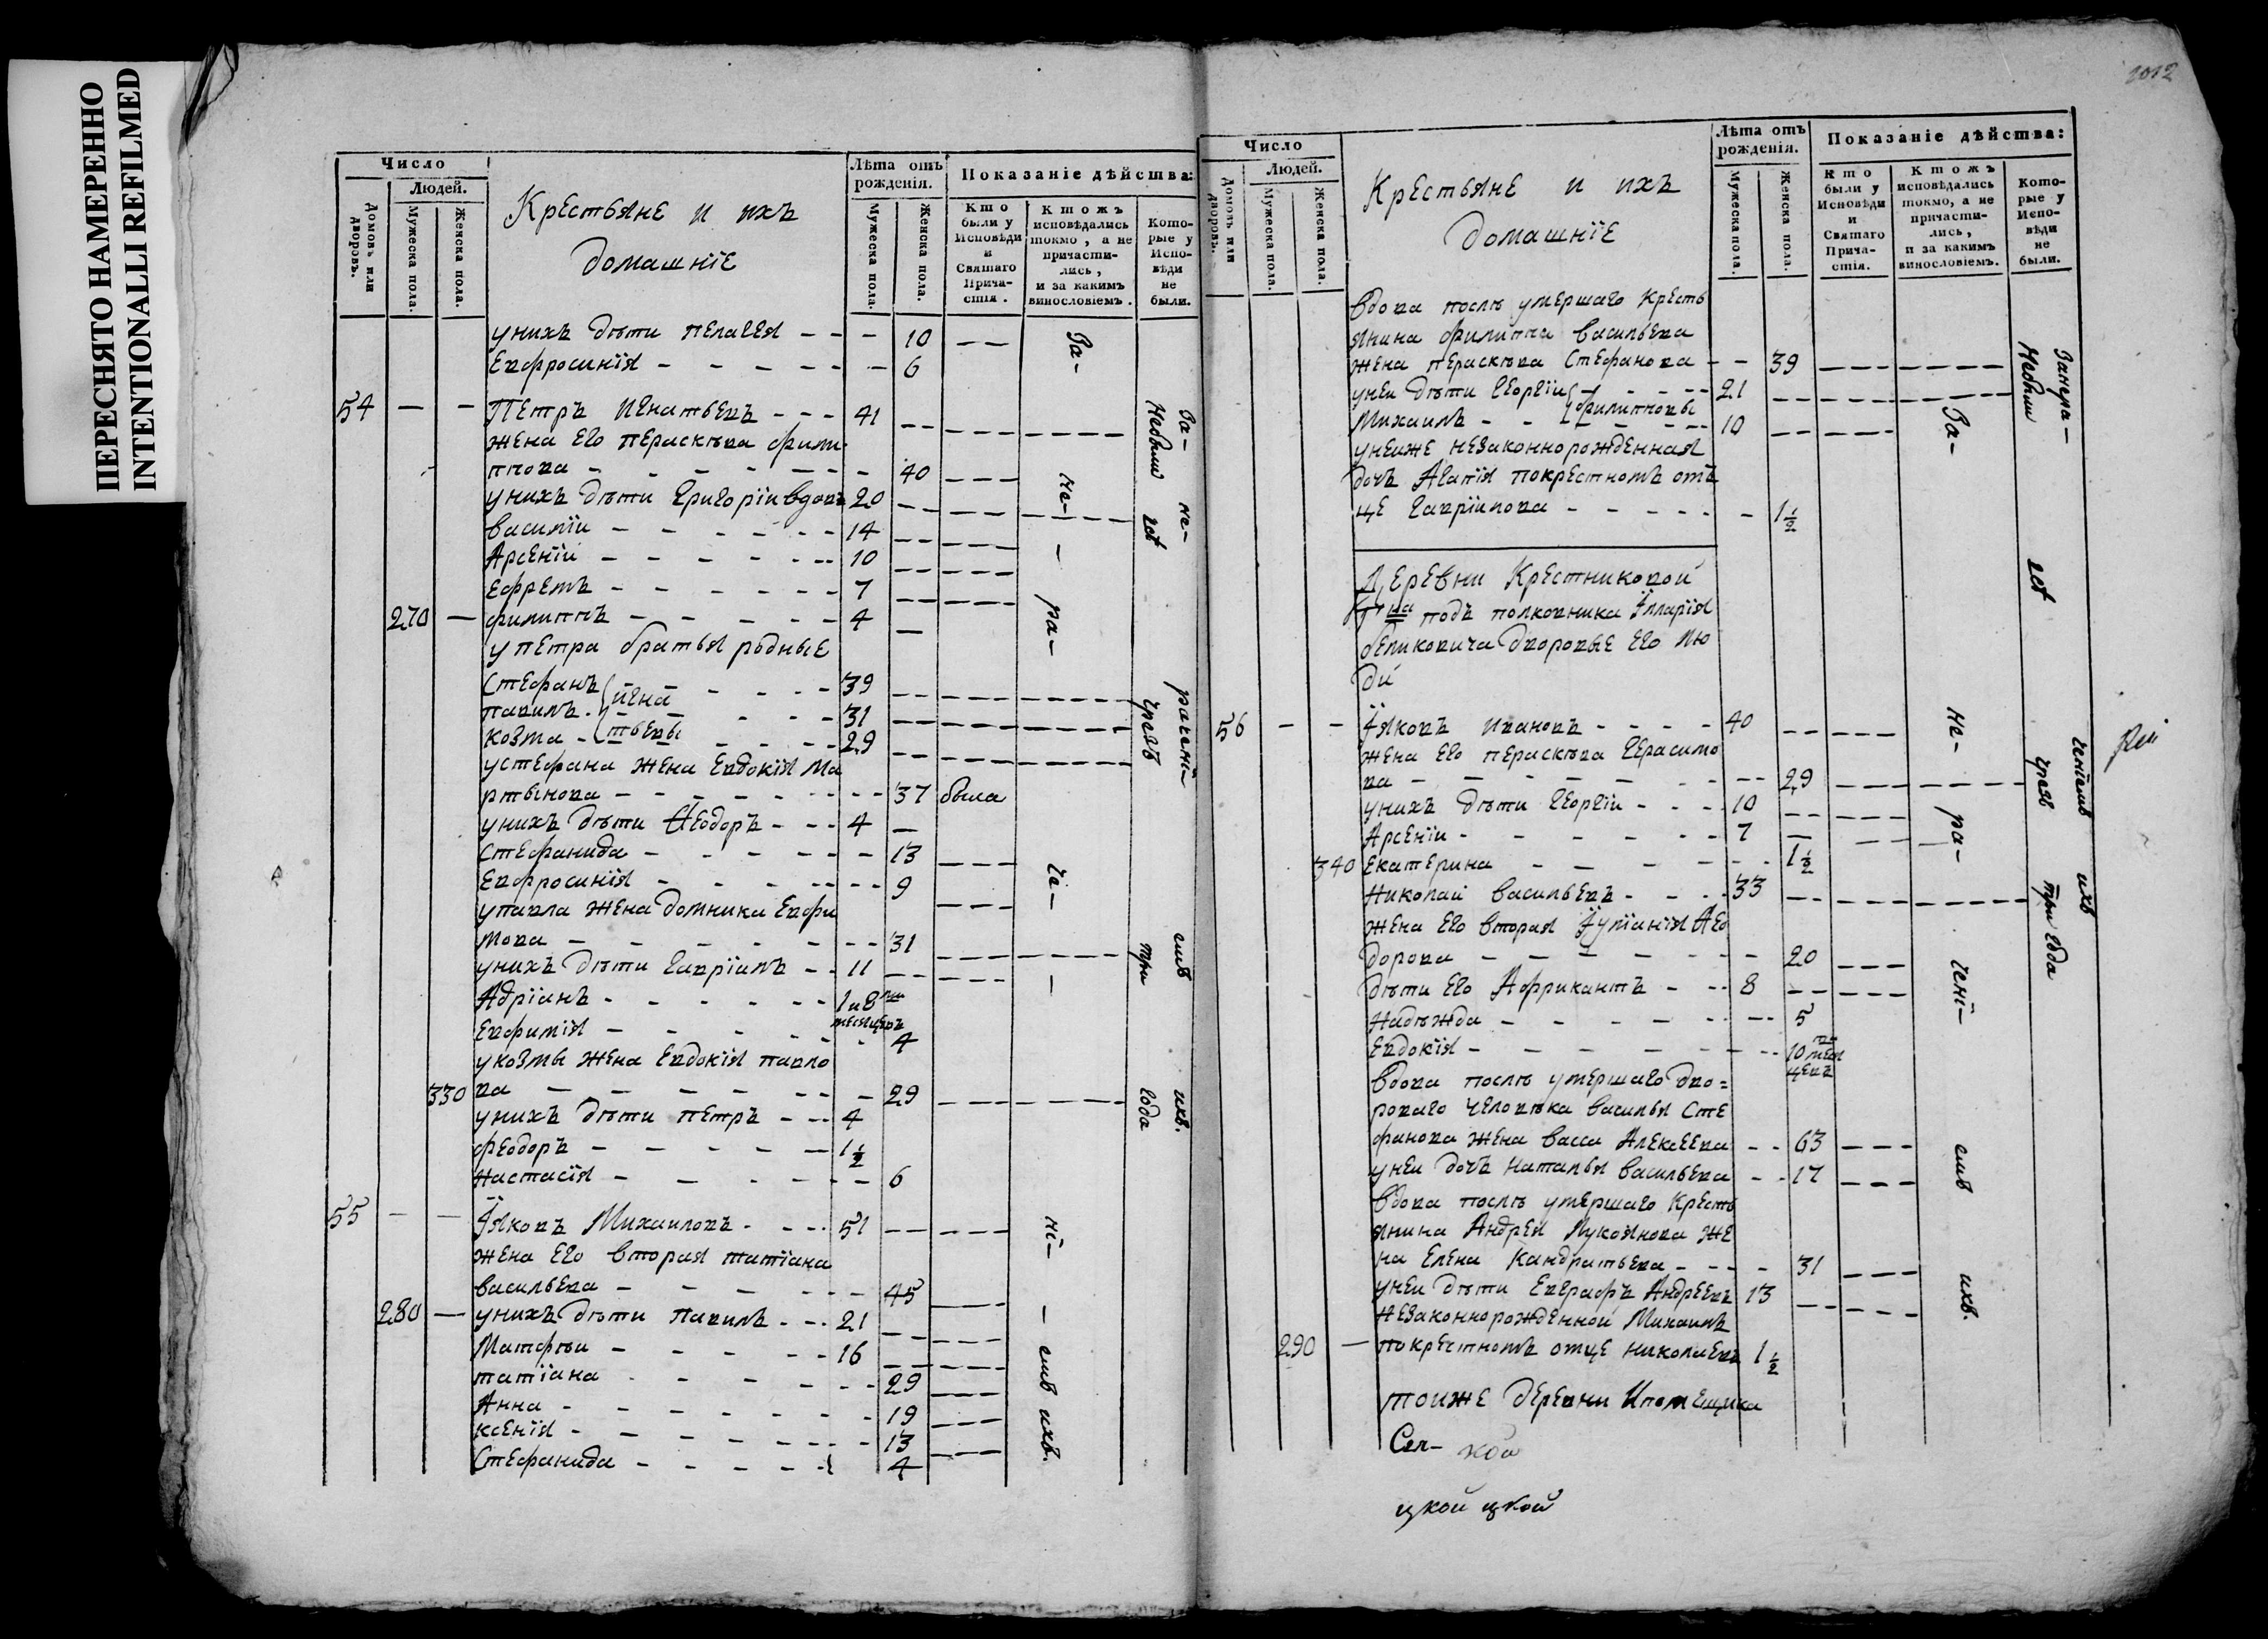 ПЕРЕСНЯТО НАМЕРЕННО
INTENTIONALLI REFILMED
Число
Людей.
Домовъ или дворовъ.
Мужеска пола.
Женска пола.
Крестьяне и ихъ
домашнїе
Лѣта отъ рожденія.
Мужеска пола.
Женска пола.
Показаніе дѣйства:
Кто были у Исповѣди и Святаго Прича-стія.
Ктожъ исповѣдались токмо, а не причасти-лись, и за какимъ винословіемъ.
Кото-рые у Испо-вѣди не были.
унихъ дѣти пелагея - - - 10
Евфросинїя - - - - - - 6
54 - - Петръ Игнатьевъ - - - 41
жена его перасковa фили
ппова - - - - - - 40
унихъ дѣти григорїи вдовъ 20
василїи - - - - - - 14
Арсенїи - - - - - - 10
Ефремъ - - - - - - 7
270 - филиппъ - - - - - 4
упетра братья родные
Стефанъ - - - - 39
павилъ - игна - - - 31
козма - тьевы - - - 29
устефана жена Евдокїя Ма
ртынова - - - - - - 37 была
унихъ дѣти Ѳеодоръ - - - 4
стефанида - - - - - - 13
Евфросинїя - - - - - - 9
упавла жена домника Евфи
мова - - - - - - 31
унихъ дѣти гаврїилъ - - 11
Адрїанъ - - - - - - 1 и 8 ми месяцовъ
Евфимїя - - - - - - 4
укозмы жена Евдокїя павло
330 ва - - - - - - 29
унихъ дѣти петръ - - - 4
феодоръ - - - - - 1½
настасїя - - - - - - 6
55 - - Їяковъ Михаиловъ - - - 51
жена его вторая татїана
васильева - - - - - - 45
280 - унихъ дѣти павилъ - - - 21
Матфѣи - - - - - 16
татїана - - - - - - 29
Анна - - - - - - 19
ксенїя - - - - - - 13
Стефанида - - - - - 4
За-
не-
ра-
че-
нї-
емъ ихъ.
За- не- раченї- емъ ихъ.
Небыли чрезъ три года
2012
Число
Людей.
Домовъ или дворовъ.
Мужеска пола.
Женска пола.
Крестьяне и ихъ
домашнїе
Лѣта отъ рожденія.
Мужеска пола.
Женска пола.
Показаніе дѣйства:
Кто были у Исповѣди и Святаго Прича-стія.
Ктожъ исповѣдались токмо, а не причасти-лись, и за какимъ винословіемъ.
Кото-рые у Испо-вѣди не были.
вдова послѣ умершаго кресть
янина филиппа васильева
жена перасковa Стефанова - - 39
унеи дѣти георгїи - - - - 21
Михаилъ - - филипповы - - 10
унеиже незаконнорожденная
дочь Агапїя покрестномъ от
це гаврїилова - - - - - 1½
Деревни Крестниковой
гна подъ полковника Їлларїя
дворовые его лю
ди
56 - - Їяковъ ивановъ - - - - 40
жена его перасковa герасимо
ва - - - - - - 29
унихъ дѣти георгїи - - - 10
Арсенїи - - - - - - 7
340 Екатерина - - - - - - 1½
Николаи васильевъ - - - - 33
жена его вторая Їулїанїя Ѳео
дорова - - - - - - 20
дѣти его Африкантъ - - - 8
Надѣжда - - - - - - 5
Евдокїя - - - - - - 10 ти меся цевъ
вдова послѣ умершаго дво=
роваго человѣка василья Сте
фанова жена васса Алексеева - - 63
унеи дочь наталья васильева - - 17
вдова послѣ умершаго кресть
янина Андрея Лукоянова же
на Елена Кандратьева - - - 31
унеи дѣти Евграфъ Андреевъ 13
незаконнорожденной Михаилъ
290 - покрестномъ отце николаевъ 1½
тоиже деревни
За-
не-
ра-
ченї-
емъ
ихъ.
Занера- ченїемъ ихъ
Небыли чрезъ три года
цкой цкой